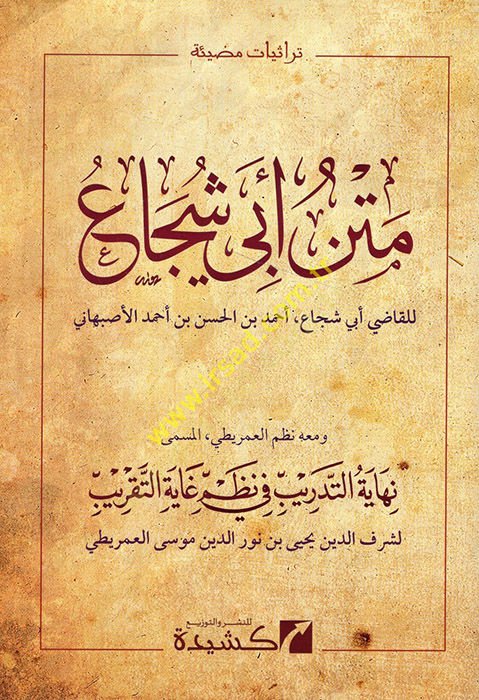 تراثيات مضيئة
مَتْنُ أَبِي شُجَاعٍ
للقاضي أبي شجاع، أحمد بن الحسن بن أحمد الأصبهاني
ومعه نظم العمريطي، المسمى
نِهَايَةُ التَّدْرِيبِ فِي نَظْمِ غَايَةِ التَّقْرِيبِ
لشرف الدين يحيى بن نور الدين موسى العمريطي
للنشر والتوزيع
كشيدة
www.irsad.com.tr